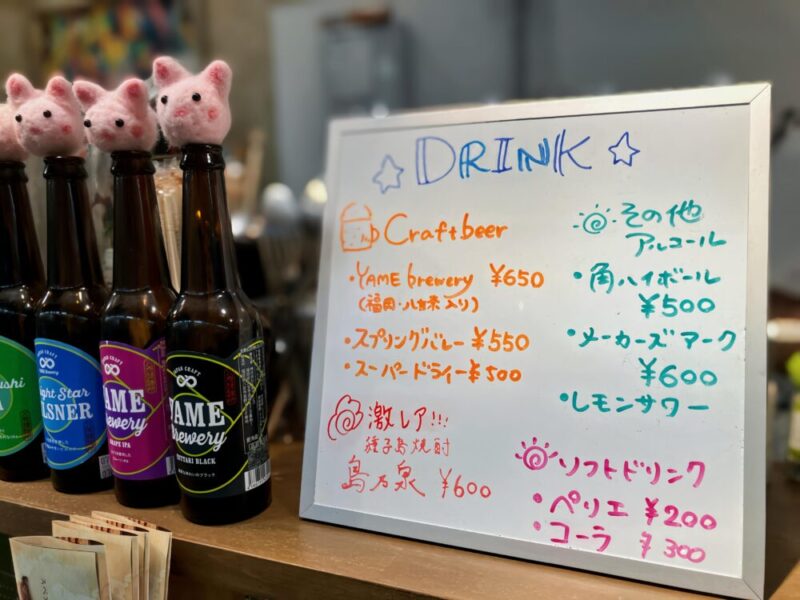 DRINK
Craftbeer
・YAME brewery ¥650
(福岡・八女茶入り)
・スプリングバレー ¥550
・スーパードライー ¥500
激レア!!!
種子島焼酎
島乃泉 ¥600
その他
アルコール
・角ハイボール
¥500
・メーカーズマーク
¥600
・レモンサワー
ソフトドリンク
・ペリエ ¥200
・コーラ ¥300
CRAFT
YAME
brewery
BLACK
CRAFT
AME
brewery
CRAFT IPA
CRAFT
ght Star
LSNER
ushi
A